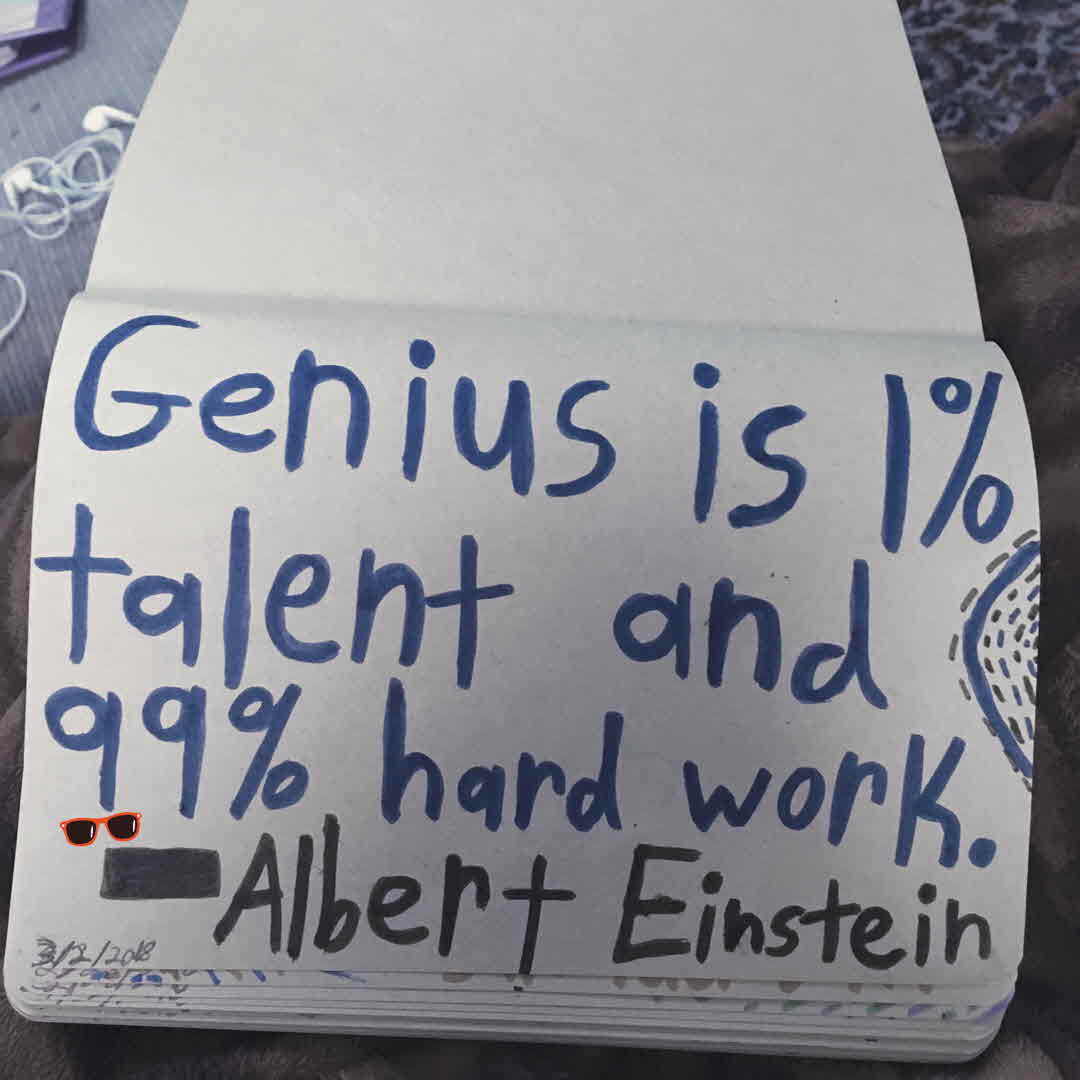 Genius is 1%
talent and
99% hard work.
- Albert Einstein
3/2/2018